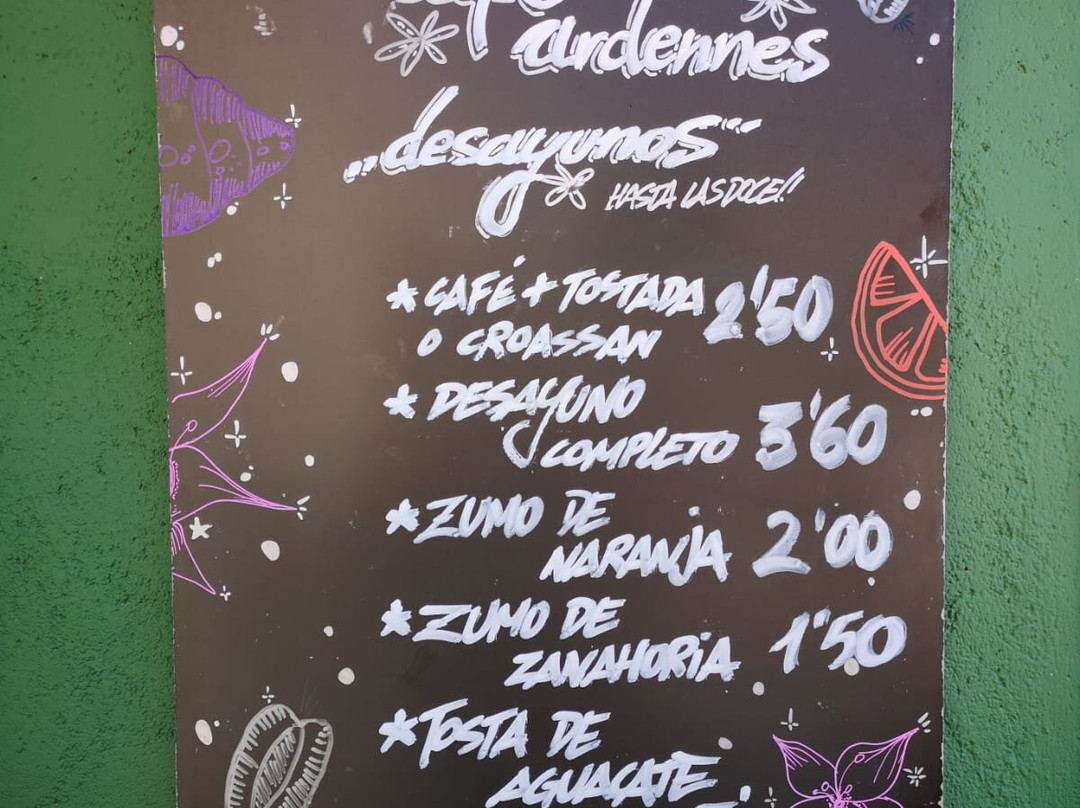 ardennes
desayunos
HASTA LAS DOCE!!
* CAFÉ + TOSTADA 2'50
O CROASSAN
* DESAYUNO
COMPLETO 3'60
* ZUMO DE
NARANJA 2'00
* ZUMO DE
ZANAHORIA 1'50
* TOSTA DE
AGUACATE